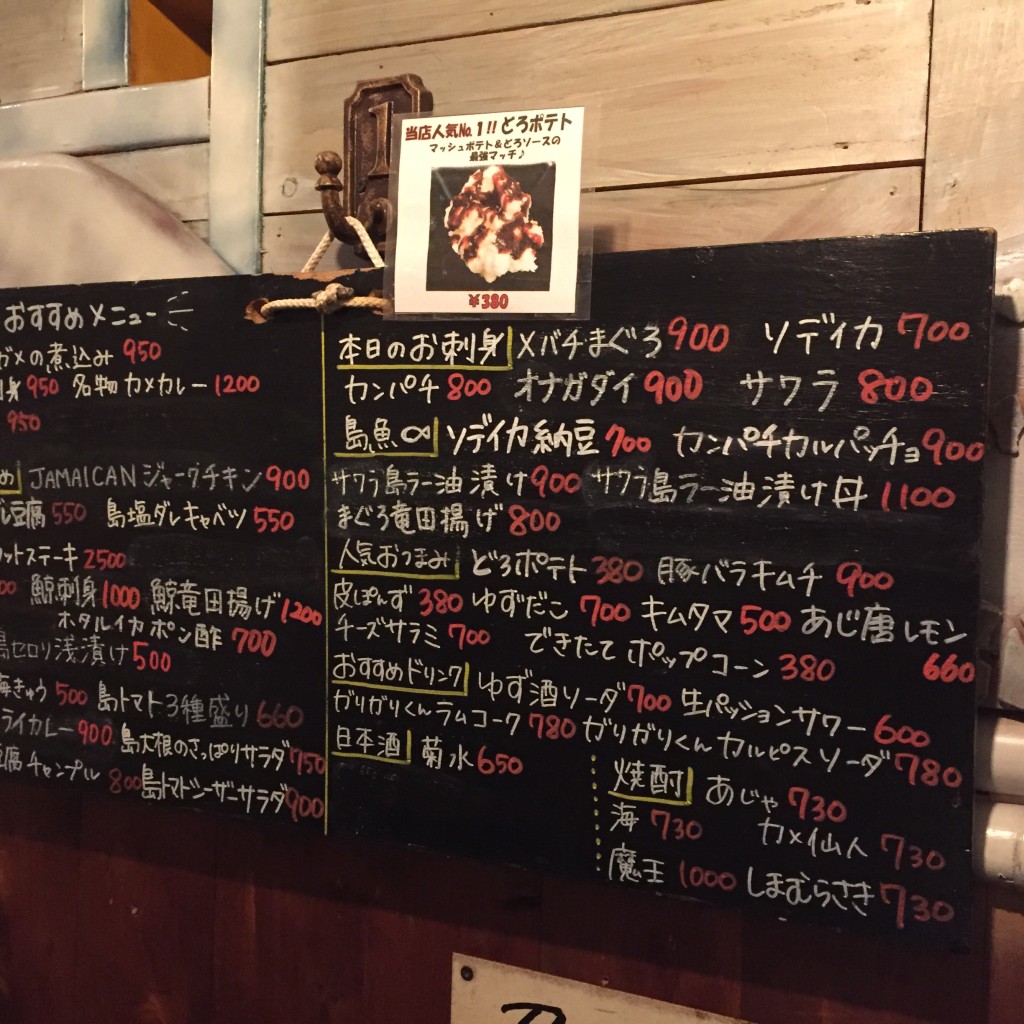 当店人気No.1!!どろポテト
マッシュポテト&どろソースの
最強マッチ♪
¥380
おすすめメニュー
ガメの煮込み 950
身 950 名物カメカレー 1200
950
め JAMAICAN ジャークチキン 900
豆腐 550 島塩ダレキャベツ 550
ットステーキ 2500
00 鯨刺身 1000 鯨竜田揚げ 1200
ホタルイカポン酢 700
島セロリ浅漬け 500
海きゅう 500 島トマト3種盛り 660
ライカレー 900 島大根のさっぱりサラダ 750
豆腐チャンプル 800 島トマトシーザーサラダ 900
本日のお刺身 メバチまぐろ 900 ソデイカ 700
カンパチ 800 オナガダイ 900 サワラ 800
島魚 ソデイカ納豆 700 カンパチカルパッチョ 900
サワラ島ラー油漬け 900 サワラ島ラー油漬け丼 1100
まぐろ竜田揚げ 800
人気おつまみ どろポテト 380 豚バラキムチ 900
皮ぽんず 380 ゆずだこ 700 キムタマ 500 あじ唐レモン 660
チーズサラミ 700 できたてポップコーン 380
おすすめドリンク ゆず酒ソーダ 700 生パッションサワー 600
ガリガリくんラムコーク 780 ガリガリくんカルピスソーダ 780
日本酒 菊水 650
焼酎 あじゃ 730
海 730 カメ仙人 730
魔王 1000 しまむらさき 730